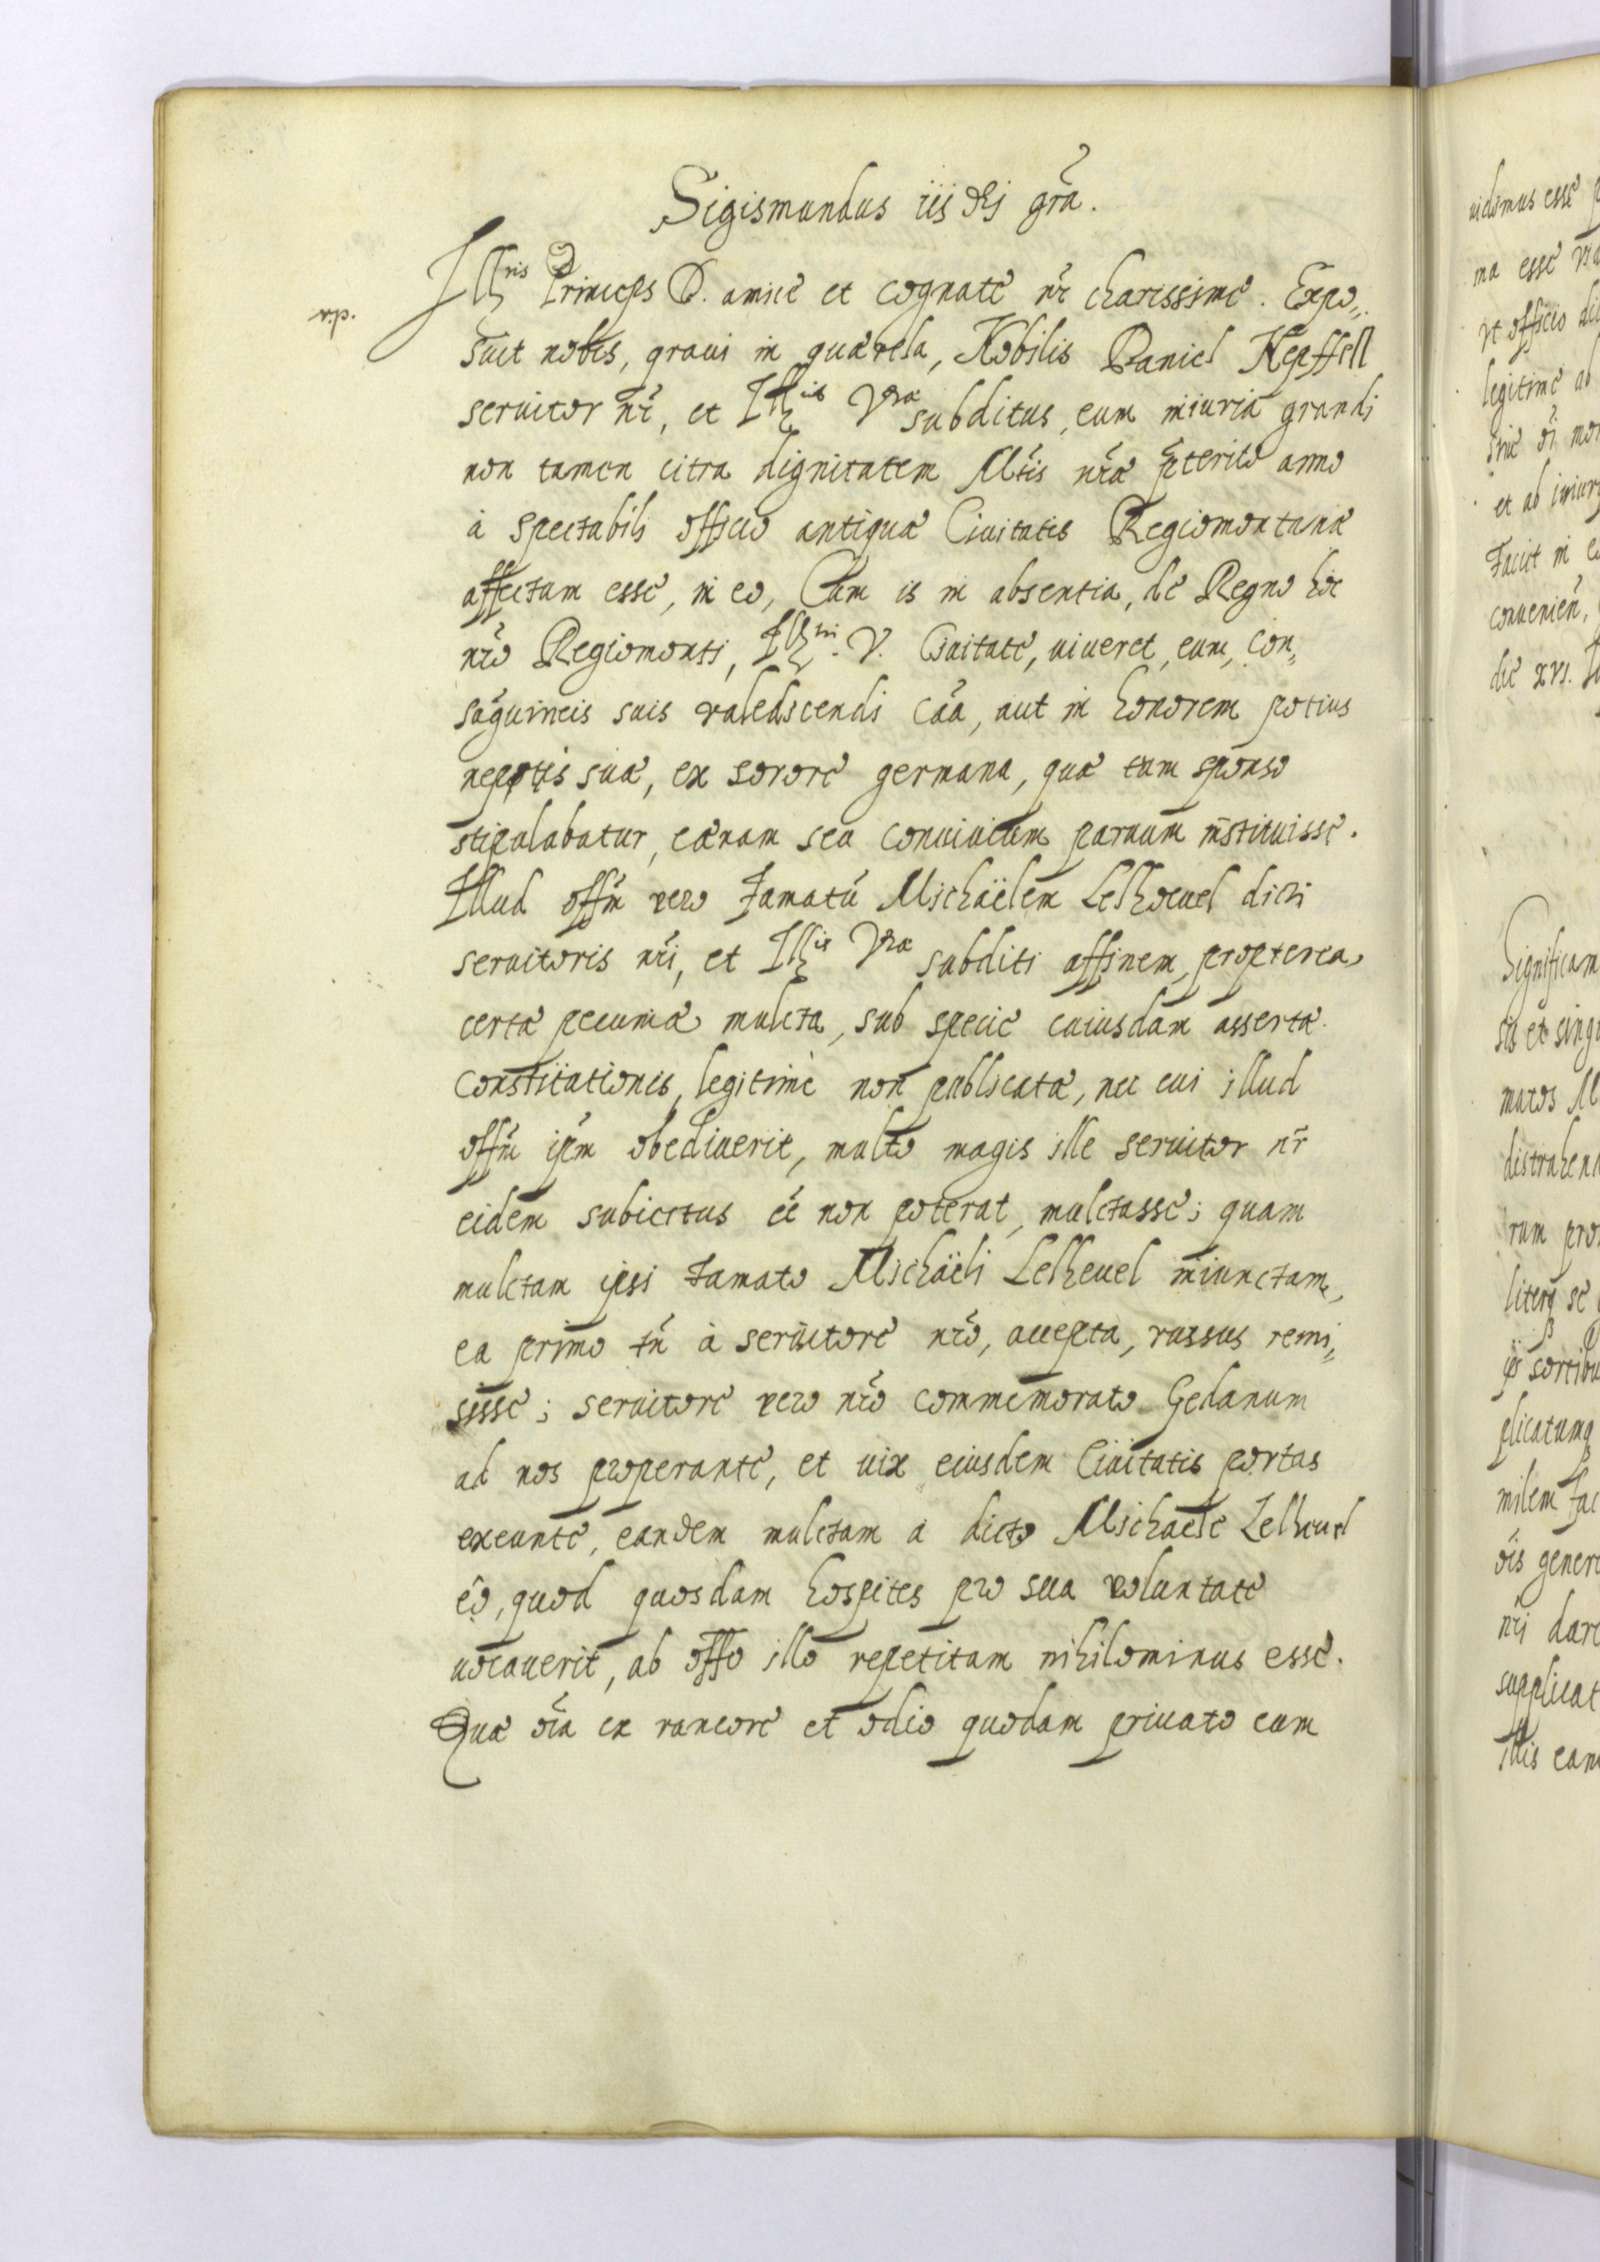 Sigismundus iij dei grã.
Illris Princeps D. amice et cognate nr̃ charissime. Expo„
r.p.
suit nobis, graui in quærela, Nobilis Daniel Kepffell
seruitor nr̃, et Illis Vræ subditus, eum iniuria grandi
non tamen citra dignitatem Mtis nr̃æ pterito anno
à spectabili officio antiquæ Ciuitatis Regiomontanæ
affectum esse, in eo, Cum is in absentia, de Regno hoc
nr̃o Regiomonti, Illtri. V. Ciuitate, uiueret, eum, con„
sãguineis suis valedicendi cãa, aut in honorem potius
neptis suæ, ex sorore germana, quæ tum sponso
stipulabatur, cænam seu conuiuium paruum instituisse.
Illud offm̃ vero famatũ Michaëlem Lelhoeuel dicti
seruitoris nr̃i, et Illis Vræ subditi affinem, propterea
certa pecuniæ mulcta, sub specie cuiusdam assertæ
constitutionis, legitimè non publicatæ, nec cui illud
offm̃ ipm̃ obediuerit, multo magis ille seruitor nr̃
eidem subiectus eẽ non poterat, mulctasse; quam
mulctam ipsi famato Michaëli Lelheuel iniunctam,
ea primo tñ à seruitore nr̃o, accepta, russus remi„
sisse; seruitore vero nr̃o commemorato Gedanum
ad nos properante, et uix eiusdem Ciuitatis portas
exeunte, eandem mulctam a dicto Michaele Lelheuel
eô, quod quosdam hospites pro sua voluntate
uocauerit, ab offo illo repetitam nihilominus esse.
Quæ oĩa ex rancore et odio quodam priuato cum
uidimus esse
ma esse
vt officio
legitime ab
siue
et ab iniur
faciet in
conuenien,
die xvj.
Significam
sis et singu
matos
distrahen
rum pro
literq se
sortibu
plicatumq
milem fac
gener
nr̃i dare
supplicat
illis eam